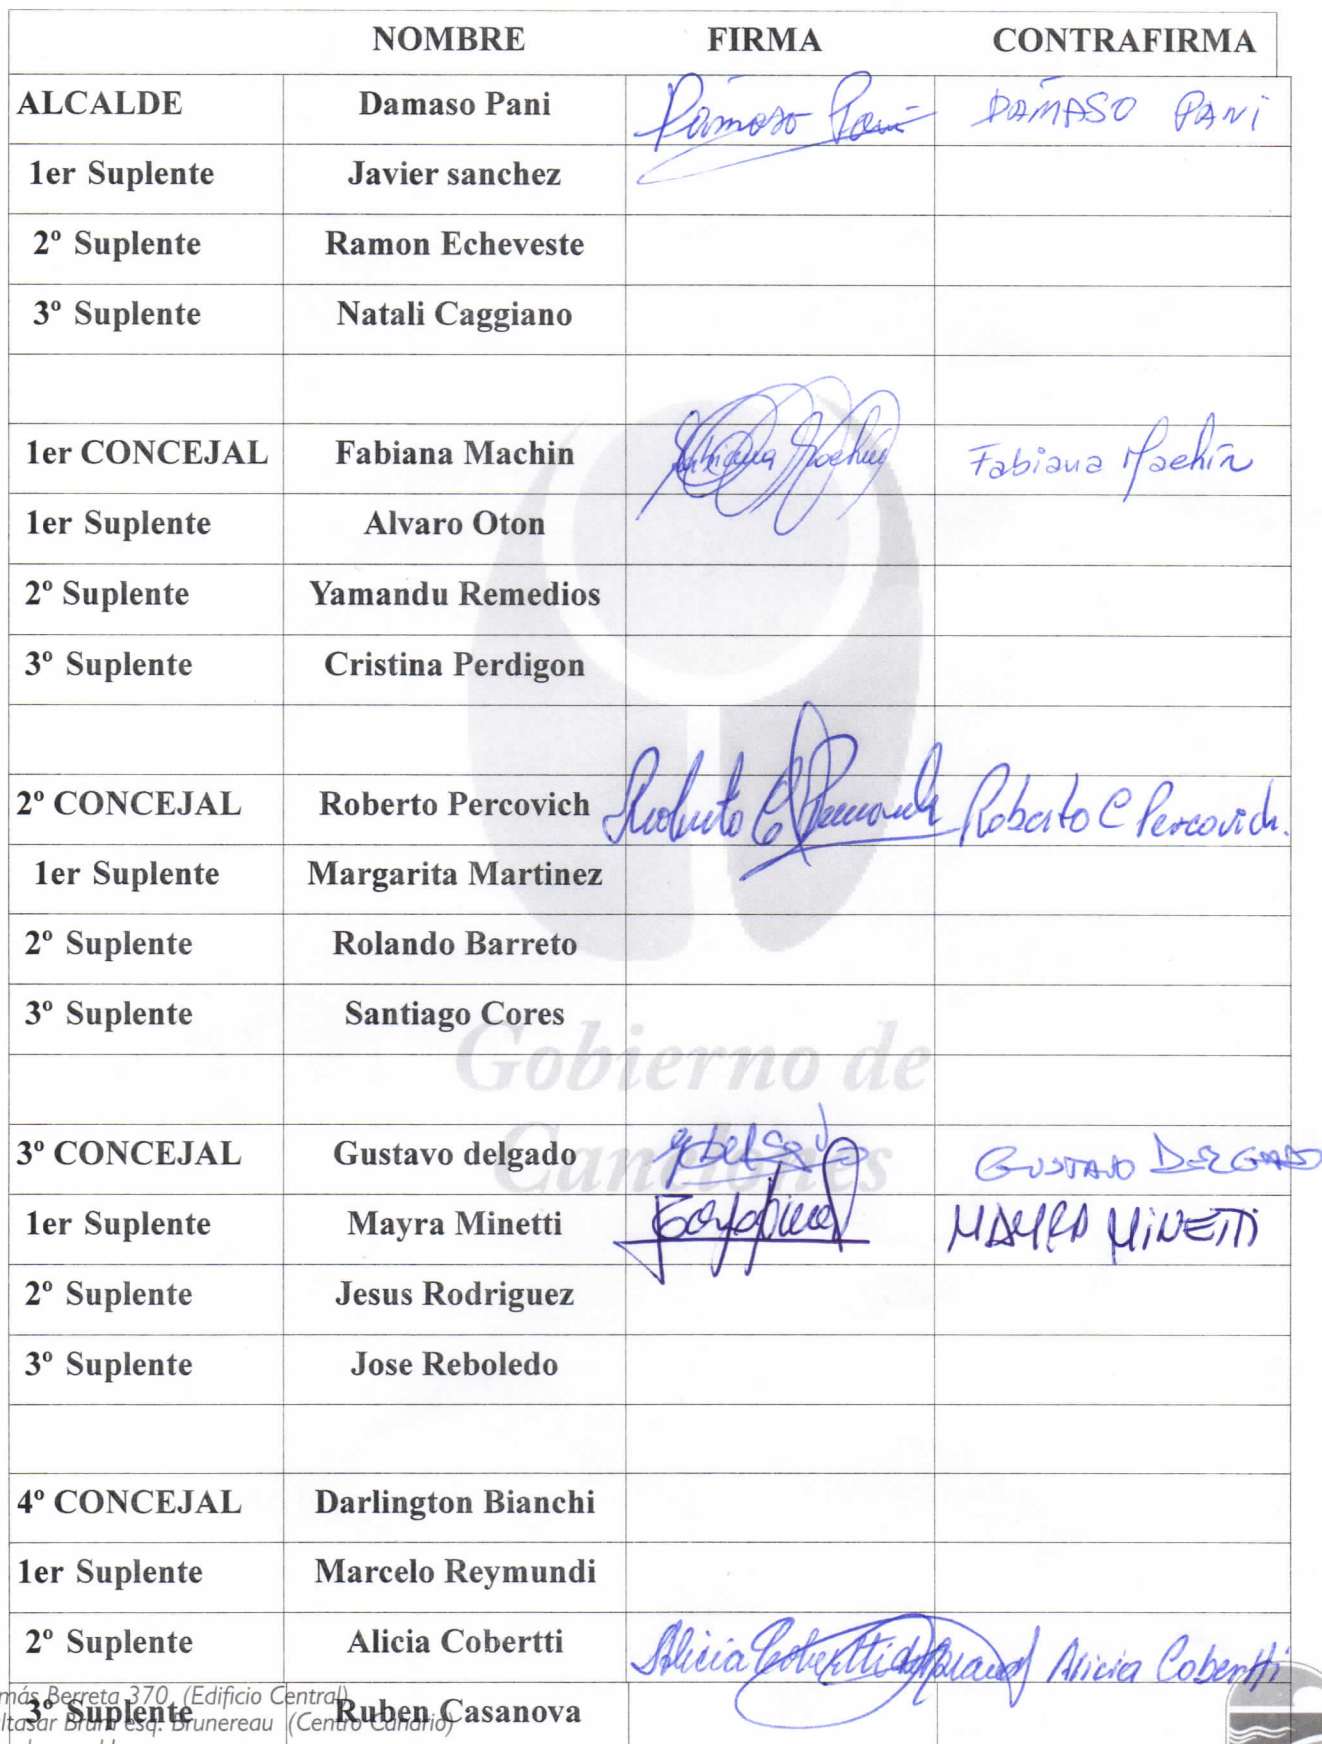 NOMBRE FIRMA CONTRAFIRMA
ALCALDE Damaso Pani Damaso Pani DAMASO PANI
1er Suplente Javier sanchez
2º Suplente Ramon Echeveste
3º Suplente Natali Caggiano
1er CONCEJAL Fabiana Machin Fabiana Machin Fabiana Machin
1er Suplente Alvaro Oton
2º Suplente Yamandu Remedios
3º Suplente Cristina Perdigon
2º CONCEJAL Roberto Percovich Roberto C Roberto C Percovich.
1er Suplente Margarita Martinez
2º Suplente Rolando Barreto
3º Suplente Santiago Cores
Gobierno de
Canelones
3º CONCEJAL Gustavo delgado GUSTAVO DELGADO
1er Suplente Mayra Minetti MAYRA MINETTI
2º Suplente Jesus Rodriguez
3º Suplente Jose Reboledo
4º CONCEJAL Darlington Bianchi
1er Suplente Marcelo Reymundi
2º Suplente Alicia Cobertti Alicia Cobertti Alicia Cobertti
3º Suplente Ruben Casanova
más Berreta 370 (Edificio Central)
ltasar Brum esq. Brunereau (Centro Canario)